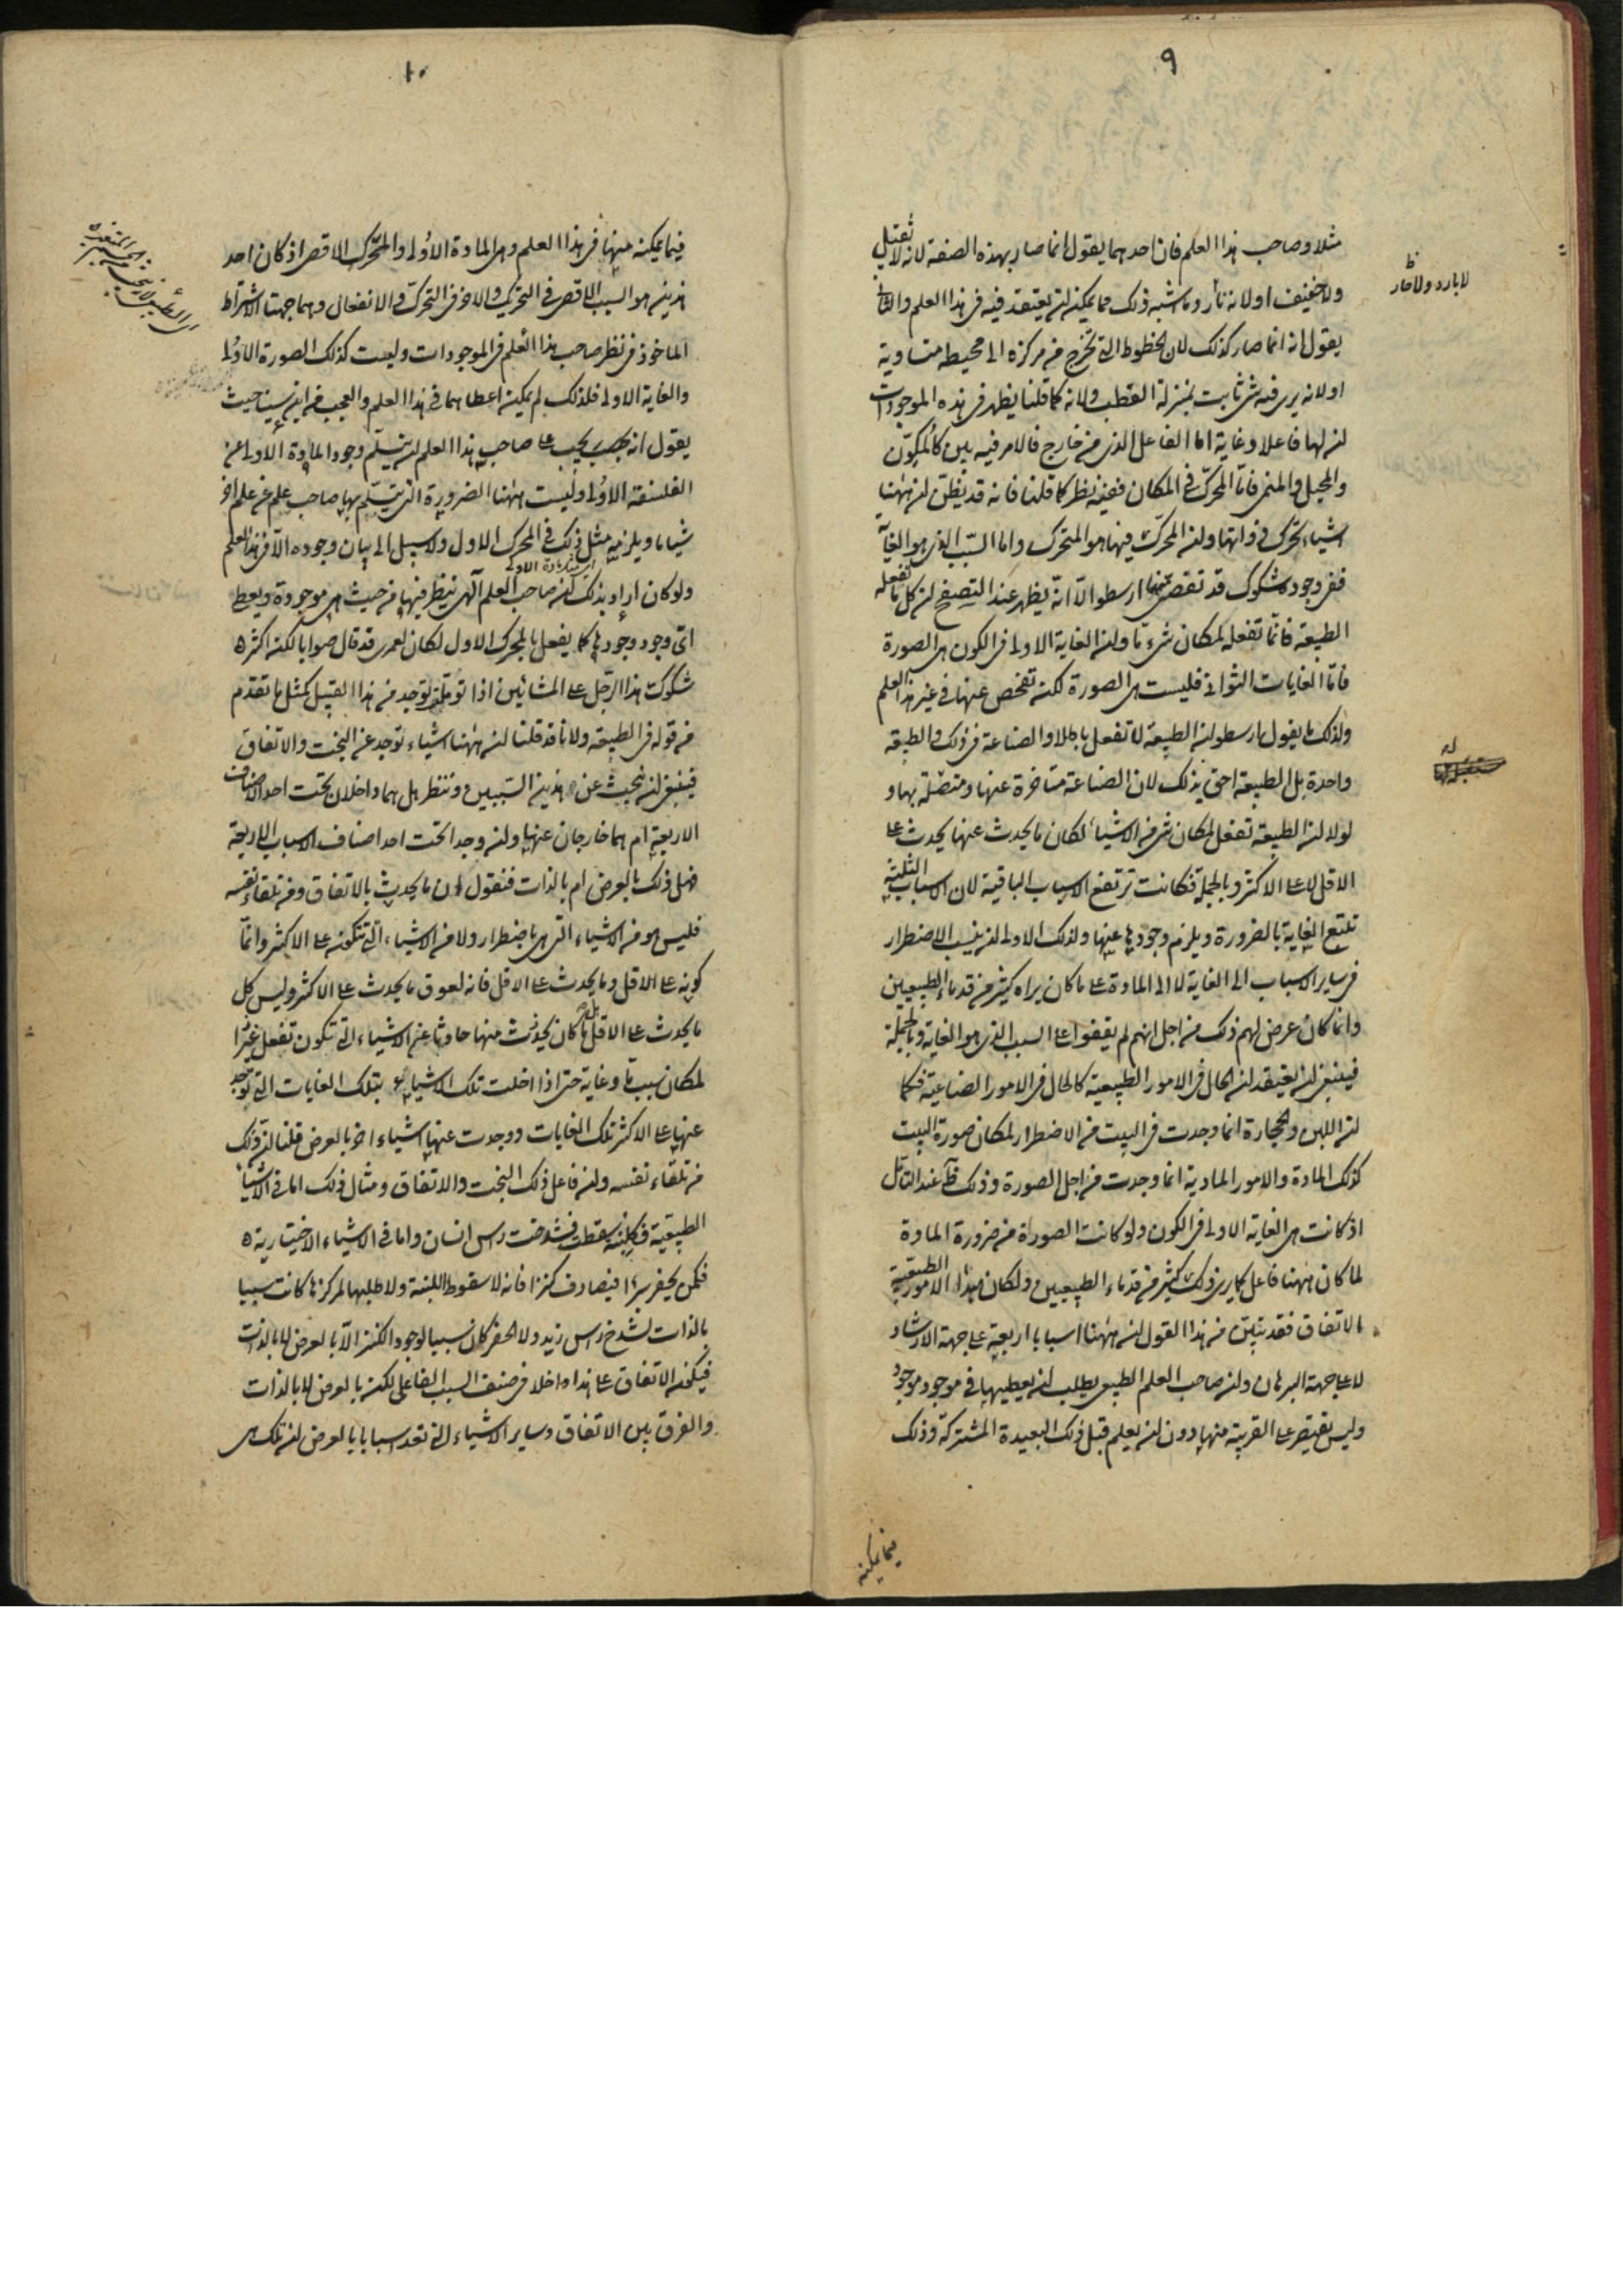 ٩
مثلا وصاحب هذا العلم فان احدهما يقول انما صار بهذه الصفة لانه لا ثقيل
ولا خفيف او لانه نار وما اشبه ذلك مما يمكنه ان يعتقد فيه في هذا العلم والثاني
يقول انه انما صار كذلك لان الخطوط التي تخرج من مركزه الى محيطه متساوية
او لانه يرى فيه شئ ثابت بمنزلة القطب ولانه كما قلنا يظهر في هذه الموجودات
ان لها فاعلا وغاية اما الفاعل الذي من خارج فالامر فيه بين كالمكون
والمحيل والمنمى فاما المحرك في المكان ففيه نظر كما قلنا فانه قد يظن ان ههنا
اشياء تتحرك من ذواتها وان المحرك فيها هو المتحرك واما السبب الذي هو الغاية
ففي وجوده شكوك قد تقصى عنها ارسطو الا انه يظهر عند التصفح ان كل ما تفعله
الطبيعة فانما تفعله لمكان شئ ما وان الغاية الاولى في الكون هي الصورة
فاما الغايات الثواني فليست هي الصورة لكنه تفحص عنها في غير هذا العلم
ولذلك ما يقول ارسطو ان الطبيعة لا تفعل باطلا والصناعة في ذلك والطبيعة
واحدة بل الطبيعة احق بذلك لان الصناعة متاخرة عنها ومتقبلة بها و
لولا ان الطبيعة تفعل لمكان شئ من الاشياء لكان ما يحدث عنها يحدث على
الاقل لا على الاكثر وبالجملة فكانت ترتفع الاسباب الباقية لان الاسباب الثلثة
تتبع الغاية بالضرورة ويلزم وجودها عنها ولذلك الاولى ان ينسب الاضطرار
في ساير الاسباب الى الغاية لا الى المادة على ما كان يراه كثير من قدماء الطبيعيين
وانما كان عرض لهم ذلك من اجل انهم لم يقفوا على السبب الذي هو الغاية وبالجملة
فينبغي ان يعتقد ان الحال في الامور الطبيعية كالحال في الامور الصناعية فكما
ان اللبن والحجارة انما وجدت في البيت من الاضطرار لمكان صورة البيت
كذلك المادة والامور المادية انما وجدت من اجل الصورة وذلك ظ عند التامل
اذ كانت هي الغاية الاولى في الكون ولو كانت الصورة من ضرورة المادة
لما كان ههنا فاعل كما يرى ذلك كثير من قدماء الطبيعيين ولكان هذا الامور الطبيعية
بالاتفاق فقد تبين من هذا القول ان ههنا اسبابا اربعة على جهة الارشاد
لا على جهة البرهان وان صاحب العلم الطبيعي يطلب ان يعطيها في موجود موجود
وليس يقتصر على القريبة منها دون ان يعلم قبل ذلك البعيدة المشتركة وذلك
فيما يمكنه
لا بارد ولا حار ظ
١٠
فيما يمكنه منها في هذا العلم وهي المادة الاولى والمحرك الاقصى اذ كان احد
هذين هو السبب الاقصى في التحريك والاخر في التحرك والانفعال وهما جهتا الاشتراط
الماخوذ في نظر صاحب هذا العلم في الموجودات وليست كذلك الصورة الاولى
والغاية الاولى فلذلك لم يمكنه اعطاهما في هذا العلم والعجب من ابن سينا حيث
يقول انه يجب على صاحب هذا العلم ان يتسلم وجود المادة الاولى عن
الفلسفة الاولى وليست ههنا الضرورة التي يتسلم بها صاحب علم عن علم اخر
شيا ما ويلزمه مثل ذلك في المحرك الاول ولا سبيل الى بيان وجوده الا في هذا العلم
ولو كان اراد بذلك ان صاحب العلم الالهي ينظر فيها من حيث هي موجودة ويعطى
اى وجود وجودها كما يفعل بالمحرك الاول لكان لعمرى قد قال صوابا لكنه اكثر
شكوك هذا الرجل على المشائين اذا تؤملت توجد من هذا القبيل كمثل ما تقدم
من قوله في الطبيعة ولانا قد قلنا ان ههنا اشياء توجد عن البخت والاتفاق
فينبغي ان نبحث عن هذين السببين وننظر هل هما داخلان تحت احد الاصناف
الاربعة ام هما خارجان عنها وان وجدا تحت احد اصناف الاسباب الاربعة
فهل ذلك بالعرض ام بالذات فنقول ان ما يحدث بالاتفاق ومن تلقاء نفسه
فليس هو من الاشياء التي هي باضطرار ولا من الاشياء التي تتكون على الاكثر وانما
كونه على الاقل وما يحدث على الاقل فانه لعوق ما يحدث على الاكثر وليس كل
ما يحدث على الاقل بل ما كان يحدث منها حادثا عن الاشياء التي تكون تفعل غيرا
لمكان سبب ما وغاية حتى اذا اخلت تلك الاشياء بتلك الغايات التي توجد
عنها على الاكثر تلك الغايات ووجدت عنها اشياء اخر بالعرض قلنا ان ذلك
من تلقاء نفسه وان فاعل ذلك البخت والاتفاق ومثال ذلك اما في الاشياء
الطبيعية فكلبنة سقطت فشدخت راس انسان واما في الاشياء الاختيارية
فكمن يحفر بيرا فيصادف كنزا فانه لا سقوط اللبنة ولا طلبها لمركزها كانت سببا
بالذات لشدخ راس زيد ولا الحفر كان سببا لوجود الكنز الا بالعرض لا بالذات
فيكون الاتفاق على هذا داخلا في صنف السبب الفاعل لكنه بالعرض لا بالذات
والفرق بين الاتفاق وساير الاشياء التي تعد اسبابا بالعرض ان تلك هي